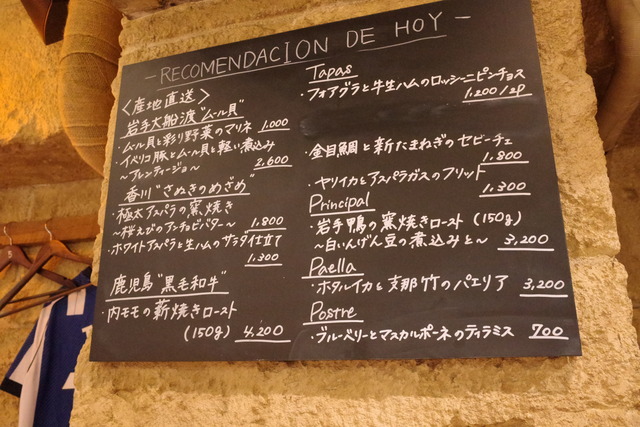 - RECOMENDACION DE HOY -
〈産地直送〉
岩手大船渡"ムール貝"
・ムール貝と彩り野菜のマリネ 1,000
・イベリコ豚とムール貝と軽い煮込み
〜アレンティージョ〜 2,600
香川"さぬきのめざめ"
・極太アスパラの窯焼き
〜桜えびのアンチョビバター〜 1,800
・ホワイトアスパラと生ハムのサラダ仕立て
1,300
鹿児島"黒毛和牛"
・内モモの薪焼きロースト
(150g) 4,200
Tapas
・フォアグラと牛生ハムのロッシーニピンチョス
1,200/2P
・金目鯛と新たまねぎのセビーチェ
1,800
・ヤリイカとアスパラガスのフリット
1,300
Principal
・岩手鴨の窯焼きロースト (150g)
〜白いんげん豆の煮込みと〜 3,200
Paella
・ホタルイカと支那竹のパエリア 3,200
Postre
・ブルーベリーとマスカルポーネのティラミス 700